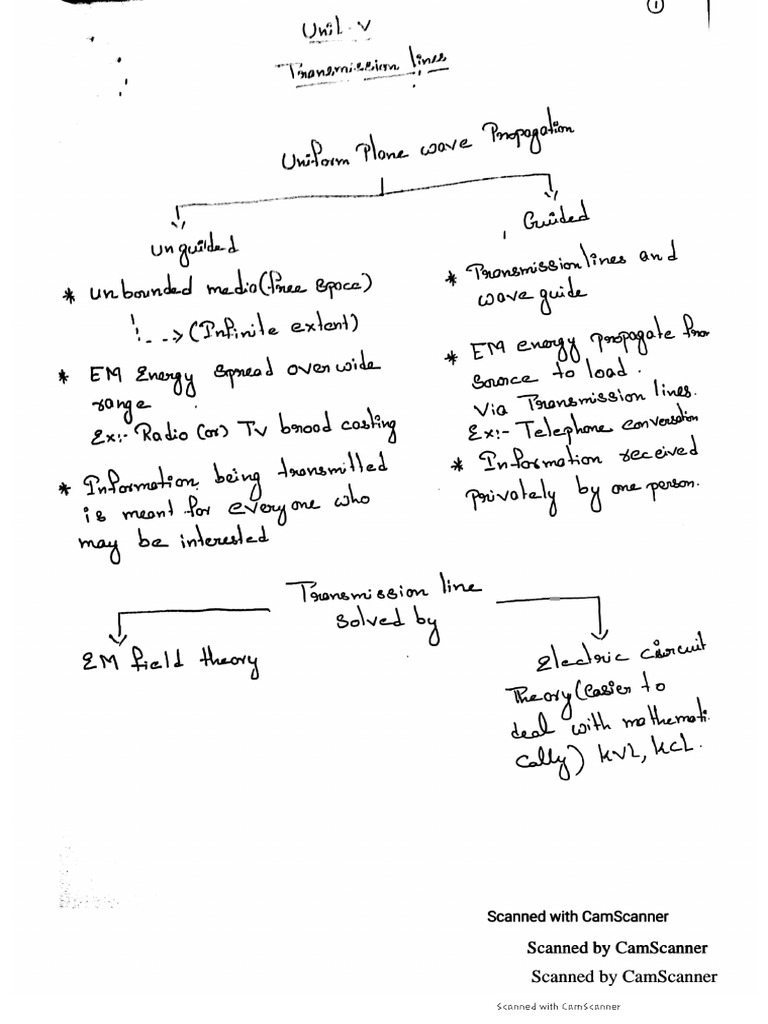 1
Unit - V
Transmission lines
Uniform Plane wave Propagation
unguided
* unbounded media (free space)
(Infinite extent)
* EM Energy spread over wide
range
Ex:- Radio (or) TV broad casting
* Information being transmitted
is meant for everyone who
may be interested
Guided
* Transmission lines and
wave guide
* EM energy propagate from
source to load.
Via Transmission lines.
Ex:- Telephone conversation
* Information received
privately by one person.
Transmission line
solved by
EM field theory
Electric circuit
Theory (easier to
deal with mathemati.
cally) KVL, KCL.
Scanned with CamScanner
Scanned by CamScanner
Scanned by CamScanner
Scanned with CamScanner